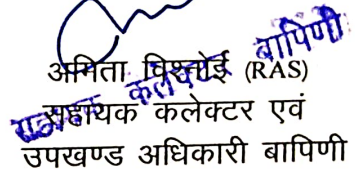 अमिता बिश्नोई (RAS)
सहायक कलेक्टर एवं
उपखण्ड अधिकारी बापिणी
सहायक कलेक्टर बापिणी